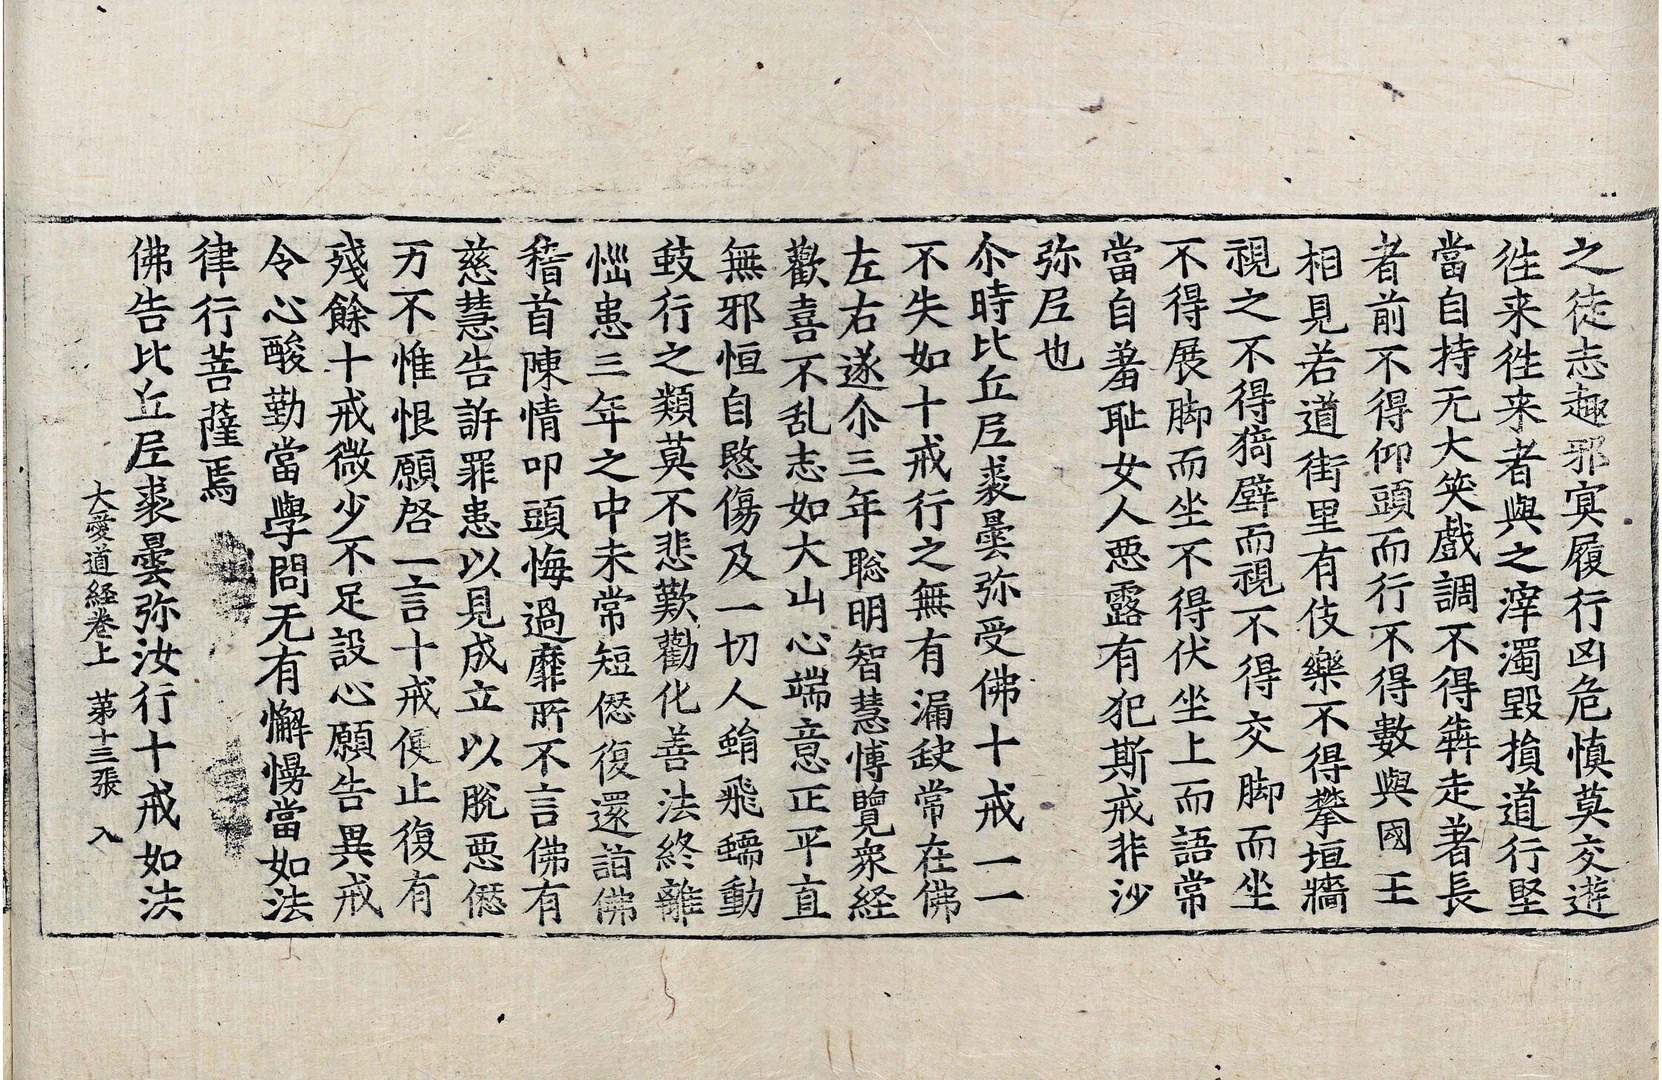 之徒志趣邪㝠履行凶危慎莫交遊
徃来徃来者與之滓濁毀損道行堅
當自持无大笑戲調不得犇走著長
者前不得仰頭而行不得數與國王
相見若道街里有伎樂不得攀垣牆
視之不得猗壁而視不得交脚而坐
不得展脚而坐不得伏坐上而語常
當自羞耻女人惡露有犯斯戒非沙
弥尼也
尒時比丘尼裘曇弥受佛十戒一一
不失如十戒行之無有漏缺常在佛
左右遂尒三年聡明智慧博覽衆経
歡喜不乱志如大山心端意正平直
無邪恒自愍傷及一切人蜎飛蠕動
蚑行之類莫不悲歎勸化善法終離
惱患三年之中未常短愆復還詣佛
稽首陳情叩頭悔過靡所不言佛有
慈慧告許罪患以見成立以脫惡愆
万不惟恨願啓一言十戒便止復有
殘餘十戒微少不足設心願告異戒
令心酸勤當學問无有懈慢當如法
律行菩薩焉
佛告比丘尼裘曇弥汝行十戒如法
大愛道経卷上 苐十三張 入